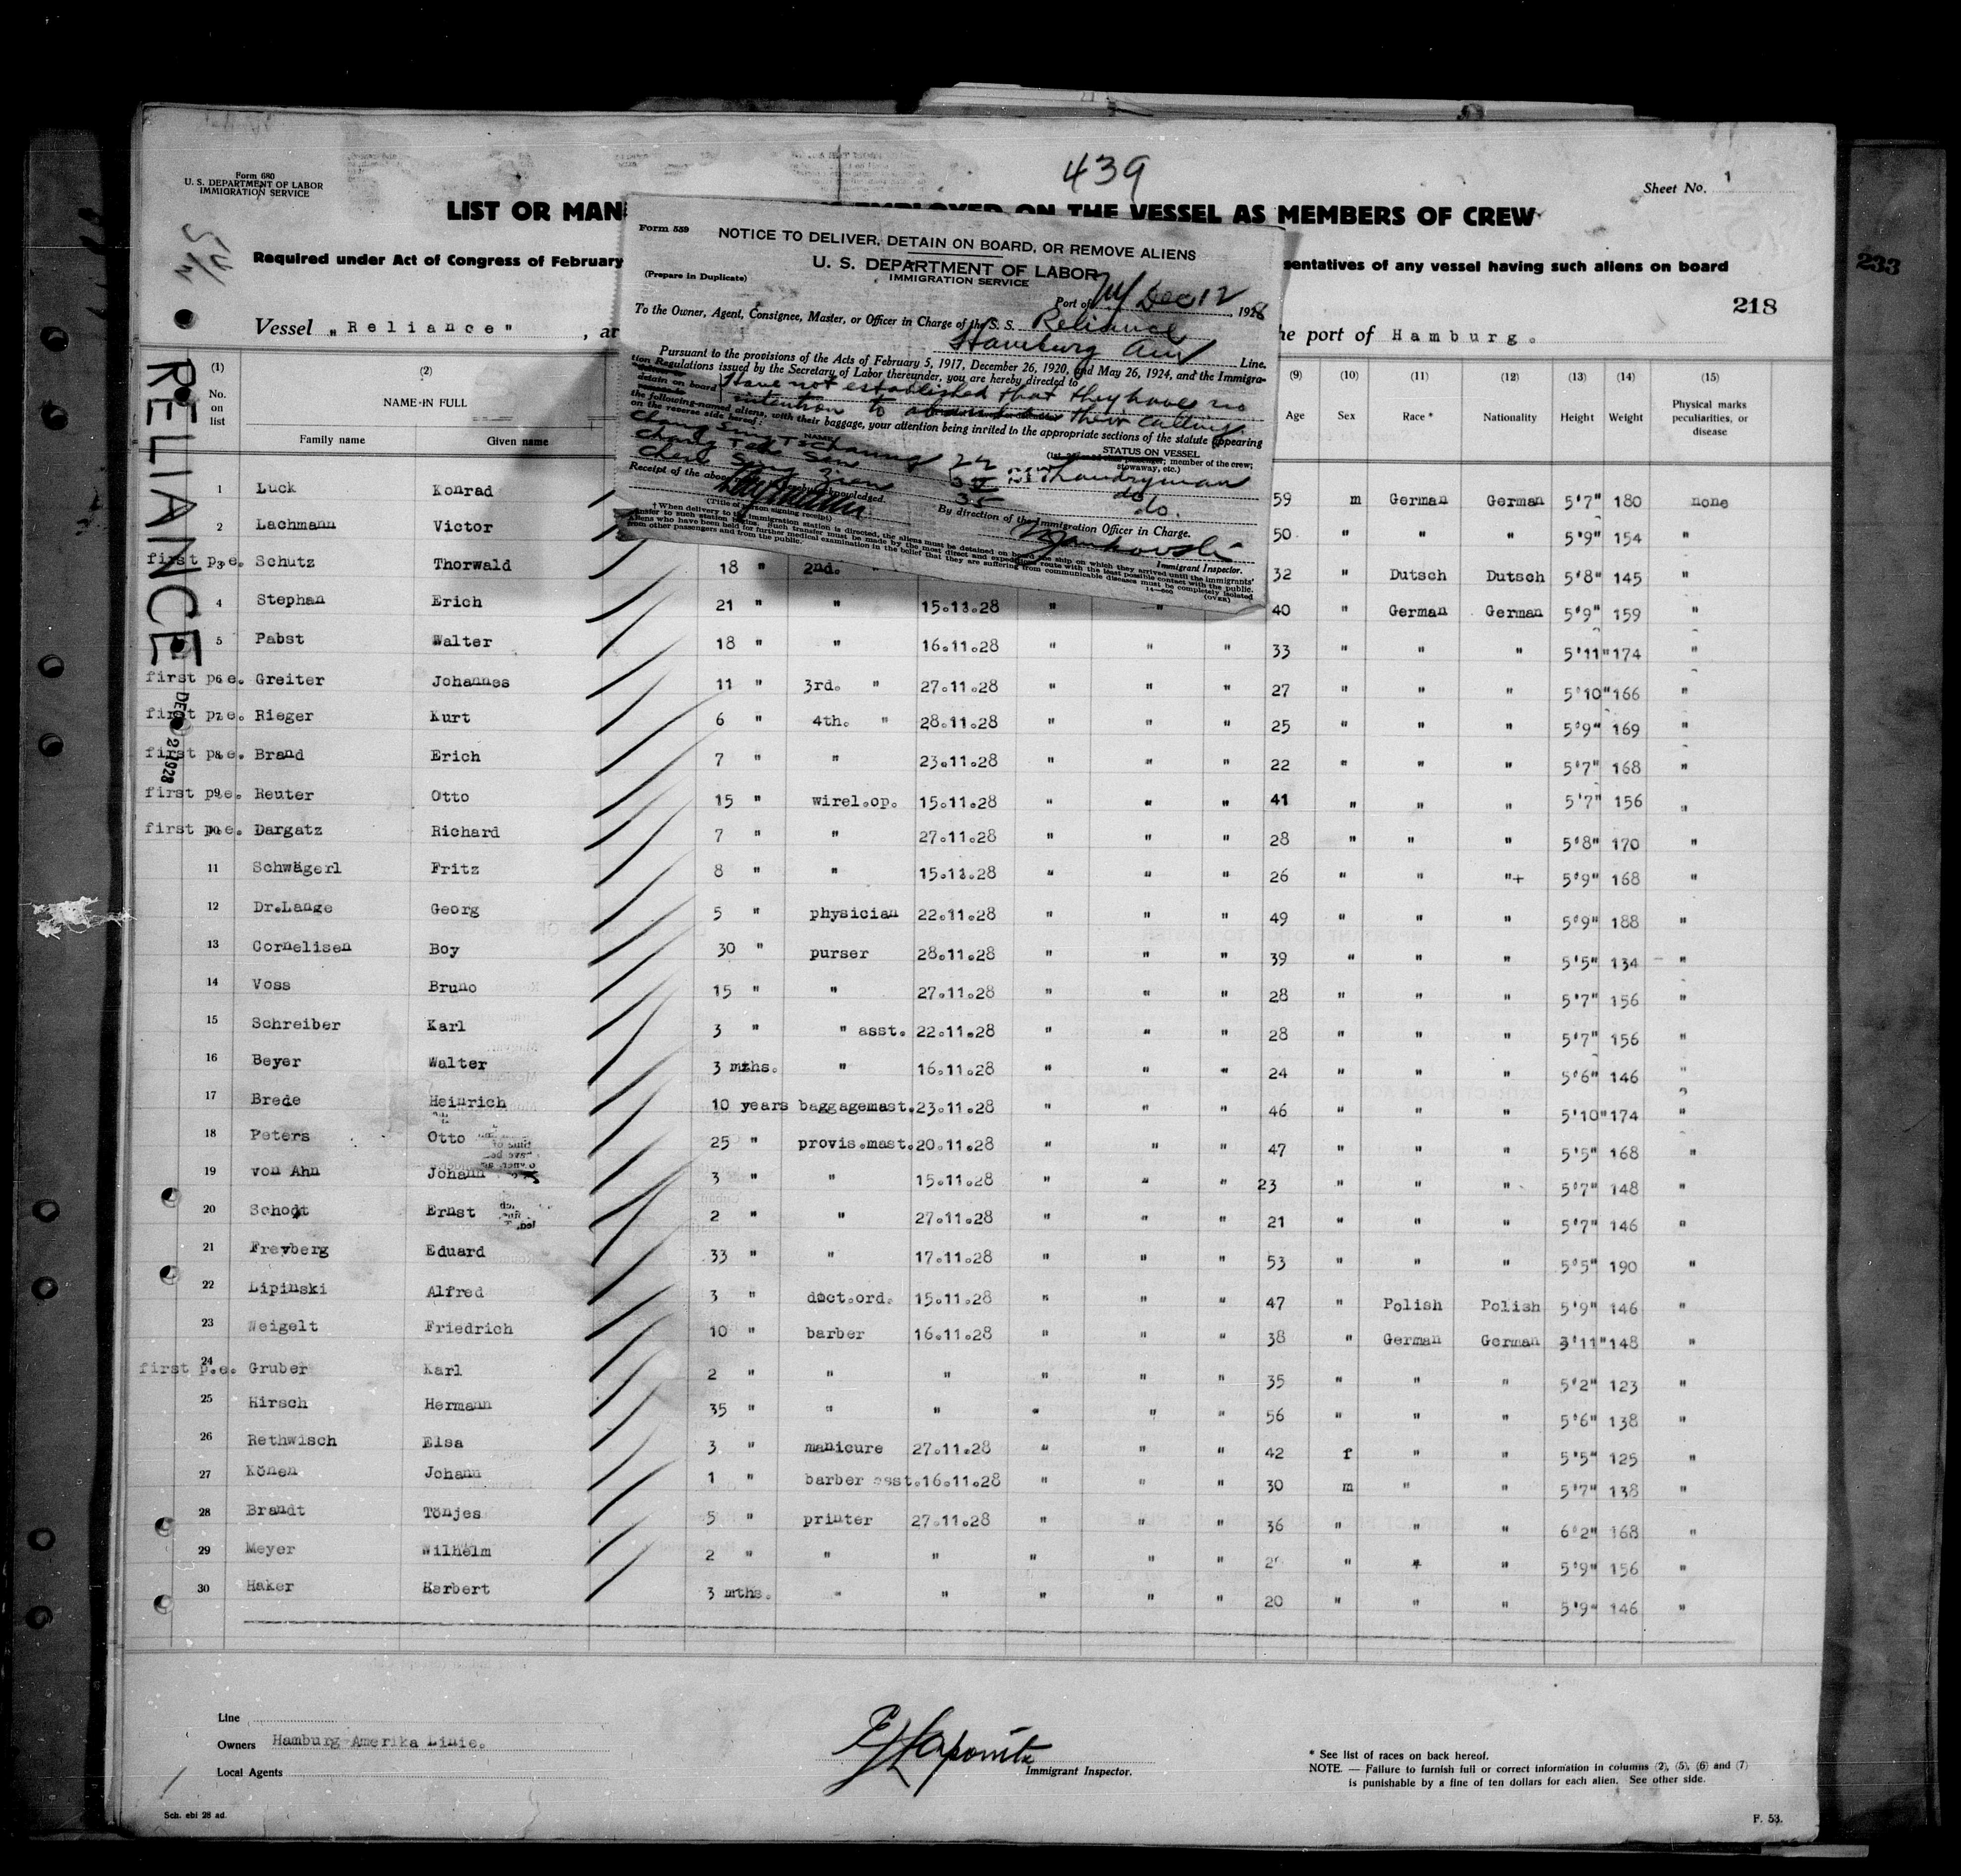 439
Form 680
U. S. DEPARTMENT OF LABOR
IMMIGRATION SERVICE
Sheet No. 1
LIST OR MAN EMPLOYED ON THE VESSEL AS MEMBERS OF CREW
Required under Act of Congress of February sentatives of any vessel having such aliens on board
233
218
Vessel "Reliance", he port of Hamburg.
RELIANCE
Form 559
NOTICE TO DELIVER, DETAIN ON BOARD, OR REMOVE ALIENS
(Prepare in Duplicate)
U. S. DEPARTMENT OF LABOR
IMMIGRATION SERVICE
Port of NY Dec 12, 1928
To the Owner, Agent, Consignee, Master, or Officer in Charge of the S. S. Reliance
Hamburg Am Line.
Pursuant to the provisions of the Acts of February 5, 1917, December 26, 1920, and May 26, 1924, and the Immigra-
tion Regulations issued by the Secretary of Labor thereunder, you are hereby directed to
detain on board Have not established that they have no
intention to abandon their calling.
the following-named aliens, with their baggage, your attention being invited to the appropriate sections of the statute appearing
on the reverse side hereof:
NAME
STATUS ON VESSEL
member of the crew;
stowaway, etc.)
22 Laundryman
do.
35 do.
Receipt of the above hereby acknowledged.
(Title of person signing receipt)
By direction of the Immigration Officer in Charge.
Immigrant Inspector.
† When delivery to the immigration station is directed, the aliens must be detained on board the ship on which they arrived until the immigrants'
transfer to such station begins. Such transfer must be made by the most direct and expeditious route with the least possible contact with the public.
Aliens who have been held for further medical examination in the belief that they are suffering from communicable diseases must be completely isolated
from other passengers and from the public.
(OVER)
(1) (2) (9) (10) (11) (12) (13) (14) (15)
No. on list NAME IN FULL Age Sex Race * Nationality Height Weight Physical marks peculiarities, or disease
Family name Given name
1 Luck Konrad 59 m German German 5'7" 180 none
2 Lachmann Victor 50 " " " 5'9" 154 "
first p.e. 3 Schutz Thorwald 18 " 2nd. " 32 " Dutsch Dutsch 5'8" 145 "
4 Stephan Erich 21 " " 15.11.28 " " 40 " German German 5'9" 159 "
5 Pabst Walter 18 " " 16.11.28 " " " 33 " " " 5'11" 174 "
first p.e. 6 Greiter Johannes 11 " 3rd. " 27.11.28 " " " 27 " " " 5'10" 166 "
first p.e. 7 Rieger Kurt 6 " 4th. " 28.11.28 " " " 25 " " " 5'9" 169 "
first p.e. 8 Brand Erich 7 " " 23.11.28 " " " 22 " " " 5'7" 168 "
first p.e. 9 Reuter Otto 15 " wirel.op. 15.11.28 " " " 41 " " " 5'7" 156 "
first p.e. 10 Dargatz Richard 7 " " 27.11.28 " " " 28 " " " 5'8" 170 "
11 Schwägerl Fritz 8 " " 15.11.28 " " " 26 " " "+ 5'9" 168 "
12 Dr.Lange Georg 5 " physician 22.11.28 " " " 49 " " " 5'9" 188 "
13 Cornelisen Boy 30 " purser 28.11.28 " " " 39 " " " 5'5" 134 "
14 Voss Bruno 15 " " 27.11.28 " " " 28 " " " 5'7" 156 "
15 Schreiber Karl 3 " " asst. 22.11.28 " " " 28 " " " 5'7" 156 "
16 Beyer Walter 3 mths. " 16.11.28 " " " 24 " " " 5'6" 146 "
17 Brede Heinrich 10 years baggagemast. 23.11.28 " " " 46 " " " 5'10" 174 "
18 Peters Otto 25 " provis.mast. 20.11.28 " " " 47 " " " 5'5" 168 "
19 von Ahn Johann 3 " " 15.11.28 " " " 23 " " " 5'7" 148 "
20 Schodt Ernst 2 " " 27.11.28 " " " 21 " " " 5'7" 146 "
21 Freyberg Eduard 33 " " 17.11.28 " " " 53 " " " 5'5" 190 "
22 Lipinski Alfred 3 " doct.ord. 15.11.28 " " " 47 " Polish Polish 5'9" 146 "
23 Weigelt Friedrich 10 " barber 16.11.28 " " " 38 " German German 3'11" 148 "
first p.e. 24 Gruber Karl 2 " " " " " " 35 " " " 5'2" 123 "
25 Hirsch Hermann 35 " " " " " " 56 " " " 5'6" 138 "
26 Rethwisch Elsa 3 " manicure 27.11.28 " " " 42 f " " 5'5" 125 "
27 Könen Johann 1 " barber asst. 16.11.28 " " " 30 m " " 5'7" 138 "
28 Brandt Tönjes 5 " printer 27.11.28 " " " 36 " " " 6'2" 168 "
29 Meyer Wilhelm 2 " " " " " " " " " 5'9" 156 "
30 Haker Herbert 3 mths. " " " " " 20 " " " 5'9" 146 "
Line
Owners Hamburg Amerika Linie.
Local Agents
Immigrant Inspector.
* See list of races on back hereof.
NOTE. — Failure to furnish full or correct information in columns (2), (5), (6) and (7)
is punishable by a fine of ten dollars for each alien. See other side.
Sch. ebi 28 ad.
F. 53.